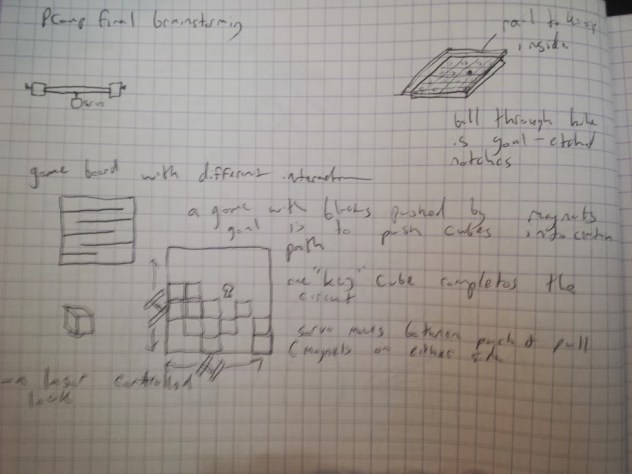 PComp final brainstorming
rail to keep
inside
servo
ball through hole
is goal - etched
notches
game board with different interaction
a game with blocks pushed by magnets
goal is to push cubes into certain
path
one "key" cube completes the
circuit
servo moves between push & pull
(magnets on either side
laser controlled
lock